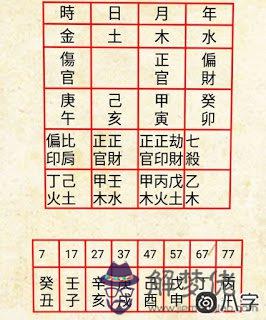 時 日 月 年
金 土 木 水
傷 正 偏
官 官 財
庚 己 甲 癸
午 亥 寅 卯
偏比 正正 正正劫 七
印肩 官財 官印財 殺
丁己 甲壬 甲丙戊 乙
火土 木水 木火土 木
7 17 27 37 47 57 67 77
癸 壬 辛 丙
丑 子 亥 戌 酉 申
解梦佬
八字